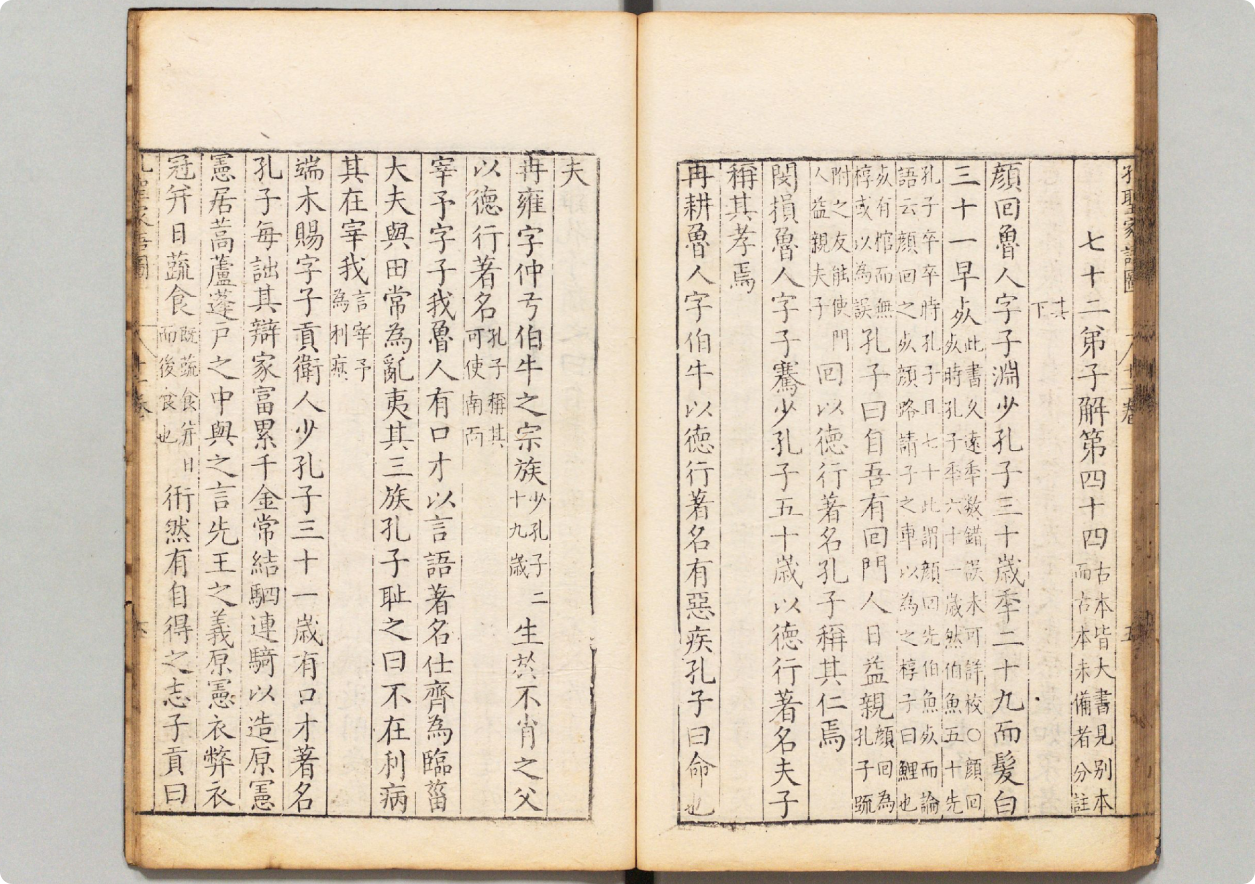 孔聖家語圖 卷 五
七十二第子解第四十四古本皆大書見别本而古本未備者分註
其下
顔回魯人字子淵少孔子三十歳秊二十九而髮白
三十一早死此書久遠秊數錯誤未可詳校○顔回死時孔子秊六十一歳然伯魚五十先
孔子卒卒時孔子日七十此謂顔回先伯魚死而論語云顔回之死顔路請子之車以為之椁子曰鯉也
死有棺而無椁或以為誤孔子曰自吾有回門人日益親顔回為孔子䟽
附之友能使門人益親夫子回以德行著名孔子稱其仁焉
閔損魯人字子騫少孔子五十歳以德行著名夫子
稱其孝焉
冉耕魯人字伯牛以德行著名有惡疾孔子曰命也
夫
冉雍字仲弓伯牛之宗族少孔子二十九歳生於不肖之父
以德行著名孔子稱其可使南面
宰予字子我魯人有口才以言語著名仕齊為臨菑
大夫與田常為亂夷其三族孔子恥之曰不在利病
其在宰我言宰予為利病
端木賜字子貢衛人少孔子三十一歳有口才著名
孔子每詘其辯家富累千金常結駟連騎以造原憲
憲居蒿蘆蓬戸之中與之言先王之義原憲衣弊衣
冠并日蔬食既蔬食并日而後食也衎然有自得之志子貢曰